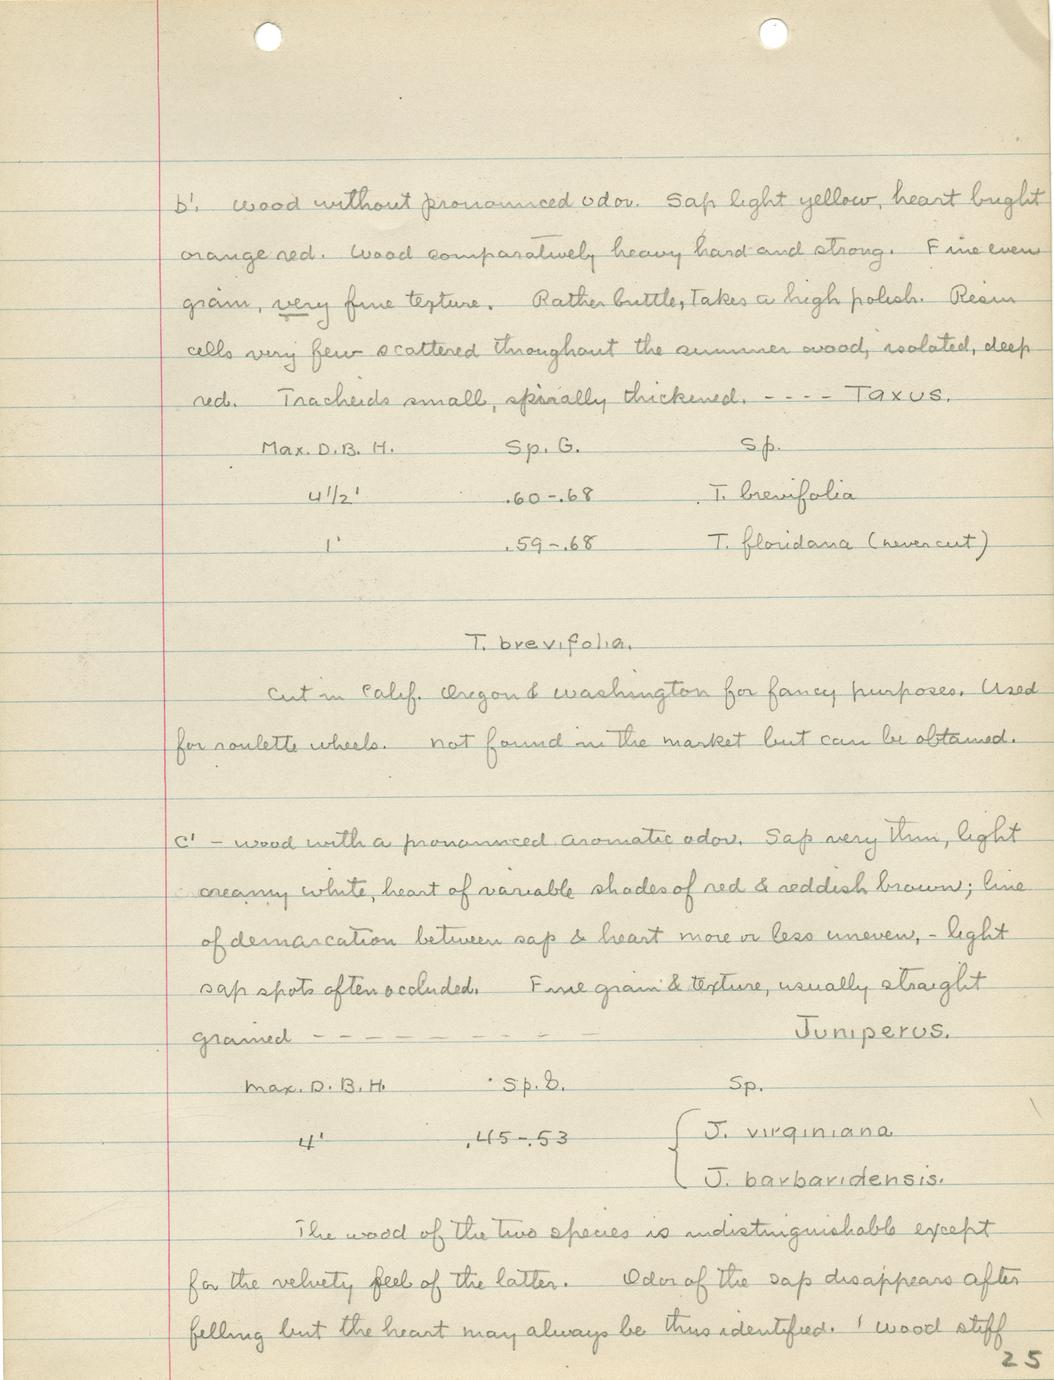 b'. Wood without pronounced odor. Sap light yellow, heart bright
orange red. Wood comparatively heavy hard and strong. Fine even
grain, very fine texture. Rather brittle, takes a high polish. Resin
cells very few scattered throughout the summer wood, isolated, deep
red. Tracheids small, spirally thickened. ---- Taxus.
Max. D.B.H. Sp. G. Sp.
4 1/2' .60-.68 T. brevifolia
1' .59-.68 T. floridana (never cut)
T. brevifolia.
Cut in Calif. Oregon & Washington for fancy purposes. Used
for roulette wheels. Not found in the market but can be obtained.
c' - Wood with a pronounced aromatic odor. Sap very thin, light
creamy white, heart of variable shades of red & reddish brown; line
of demarcation between sap & heart more or less uneven, - light
sap spots often occluded. Fine grain & texture, usually straight
grained - - - - - - - Juniperus.
Max. D.B.H. Sp. G. Sp.
4' .45-.53 { J. virginiana
J. barbaridensis.
The wood of the two species is indistinguishable except
for the velvety feel of the latter. Odor of the sap disappears after
felling but the heart may always be thus identified. Wood stiff
25